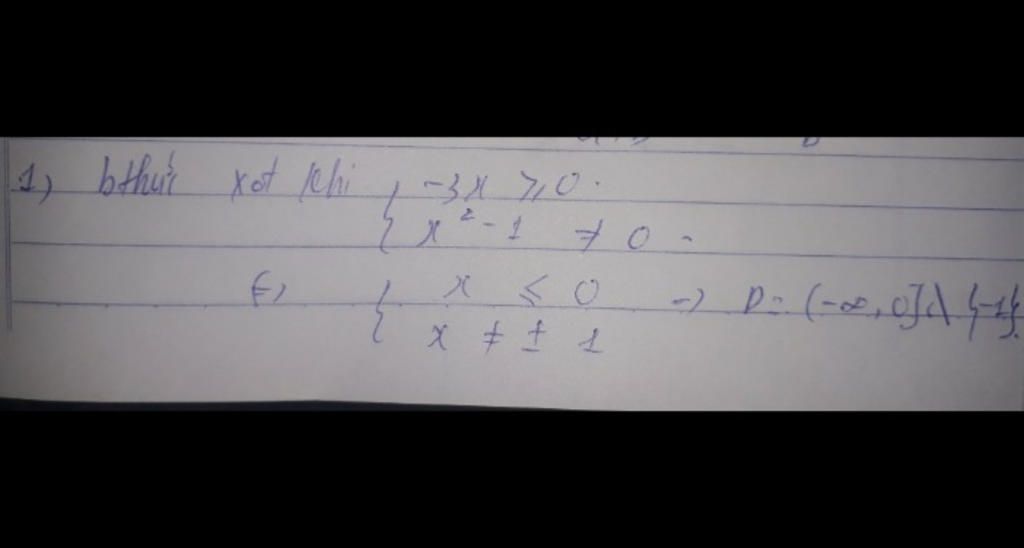 1) bthức xđ khi { -3x ≥ 0.
x² - 1 ≠ 0.
⇔ { x ≤ 0 → D = (-∞, 0] \ {-1}.
x ≠ ± 1